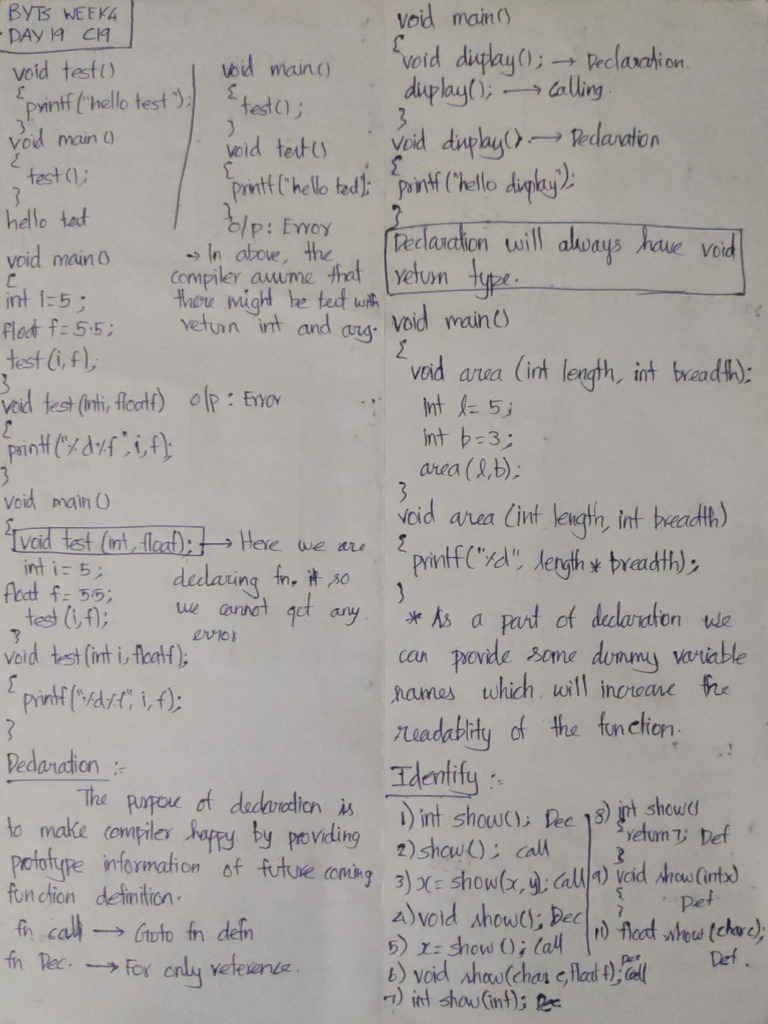 BYTS WEEK4
DAY 19 C19
void test()
{
printf("hello test");
}
void main()
{
test();
}
hello test
void main()
{
test();
}
void test()
{
printf("hello test");
}
o/p: Error
→ In above, the
compiler assume that
there might be test with
return int and arg.
void main()
{
int i=5;
float f=5.5;
test(i,f);
}
void test(inti, floatf) o/p: Error
{
printf("%d%f", i,f);
}
void main()
{
void test (int, float); → Here we are
declaring fn. so
we cannot get any
error
int i=5;
float f=5.5;
test(i,f);
}
void test(int i, floatf);
{
printf("%d%f", i,f);
}
Declaration :-
The purpose of declaration is
to make compiler happy by providing
prototype information of future coming
function definition.
fn call → Goto fn defn
fn Dec. → For only reference.
void main()
{
void display(); → Declaration.
display(); → Calling.
}
void display() → Declaration
{
printf("hello display");
}
Declaration will always have void
return type.
void main()
{
void area (int length, int breadth);
int l=5;
int b=3;
area(l,b);
}
void area (int length, int breadth)
{
printf("%d", length * breadth);
}
* As a part of declaration we
can provide some dummy variable
names which will increase the
readablity of the function.
Identify :-
1) int show(); Dec
2) show(); call
3) x = show(x,y); Call
4) void show(); Dec
5) x = show(); Call
6) void show(char c, float f); Dec
7) int show(int); Dec
8) int show()
{
return 7; Def
}
9) void show(intx)
{
Def
}
10) float show(char c);
Def.